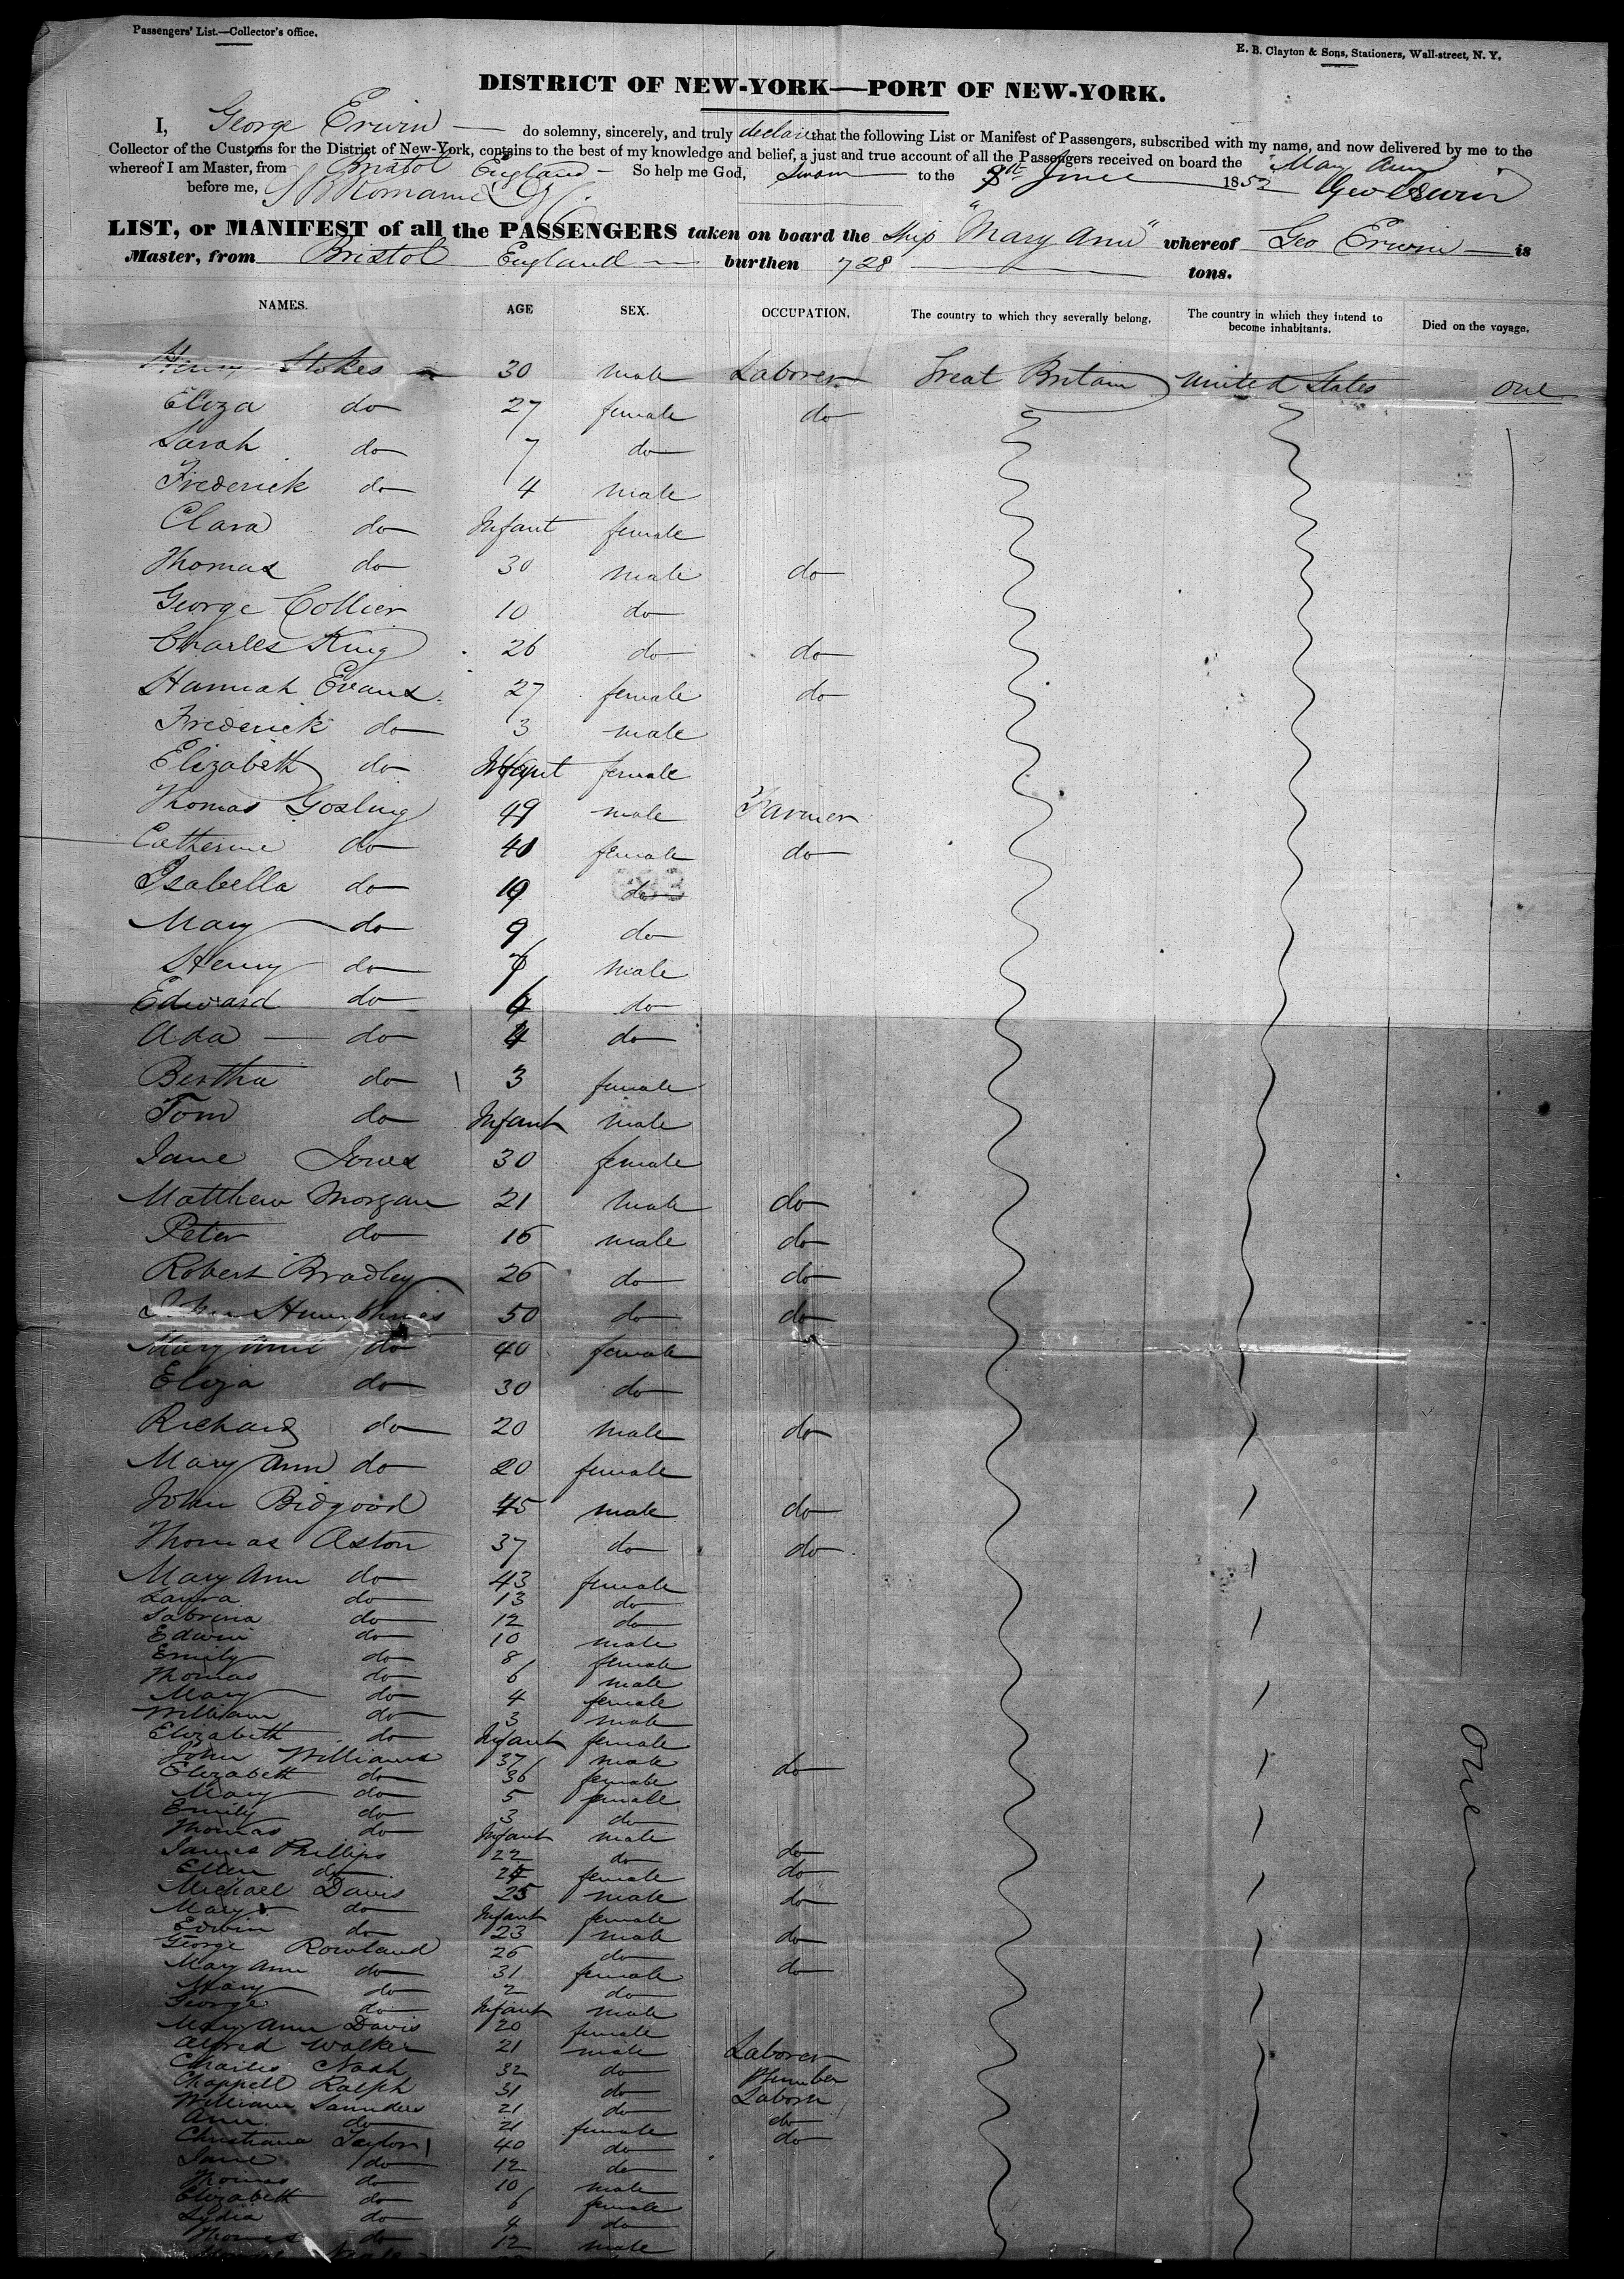 Passengers' List.—Collector's Office.
E. B. Clayton & Sons, Stationers, Wall-street, N. Y.
DISTRICT OF NEW-YORK—PORT OF NEW-YORK.
I, George Erwin — do solemny, sincerely, and truly declare that the following List or Manifest of Passengers, subscribed with my name, and now delivered by me to the
Collector of the Customs for the District of New-York, contains to the best of my knowledge and belief, a just and true account of all the Passengers received on board the "Mary Ann"
whereof I am Master, from Bristol England — So help me God, Sworn to the June 1852 Geo Erwin
before me,
LIST, or MANIFEST of all the PASSENGERS taken on board the Ship "Mary Ann" whereof Geo Erwin — is
Master, from Bristol England — burthen 728 — tons.
NAMES. AGE SEX. OCCUPATION. The country to which they severally belong. The country in which they intend to become inhabitants. Died on the voyage.
Henry Stokes 30 male Laborer Great Britain United States one
Eliza do 27 female do
Sarah do 7 do
Frederick do 4 male
Clara do Infant female
Thomas do 30 male do
George Collier 10 do
Charles King 26 do do
Hannah Evans 27 female do
Frederick do 3 male
Elizabeth do Infant female
Thomas Gosling 49 male Farmer
Catherine do 40 female do
Isabella do 19 do
Mary do 9 do
Henry do 7 male
Edward do 6 do
Ada — do 4 do
Bertha do 3 female
Tom do Infant male
Jane Jones 30 female
Matthew Morgan 21 male do
Peter do 16 male do
Robert Bradley 26 do do
John Humphries 50 do do
Mary Ann do 40 female
Eliza do 30 do
Richard do 20 male do
Mary Ann do 20 female
John Bidgood 45 male do
Thomas Aston 37 do do
Mary Ann do 43 female
Laura do 13 do
Sabrina do 12 do
Edwin do 10 male
Emily do 8 female
Thomas do 6 male
Mary do 4 female
William do 3 male
Elizabeth do Infant female
John Williams 37 male do
Elizabeth do 36 female
Mary do 5 female
Emily do 3 do
Thomas do Infant male
James Phillips 22 do do
Ellen do 24 female do
Michael Davis 25 male do
Mary do Infant female
Edwin do 23 male do
George Rowland 26 do
Mary Ann do 31 female do
Mary do 2 do
George do Infant male
Mary Ann Davis 20 female
Alfred Walker 21 male Laborer
Charles Nash 32 do Plumber
Chappell Ralph 31 do Laborer
William Saunders 21 do do
Ann do 21 female do
Christiana Taylor 40 do
Jane do 12 do
Thomas do 10 male
Elizabeth do 6 female
Lydia do 4 do
Thomas do 12 male
One